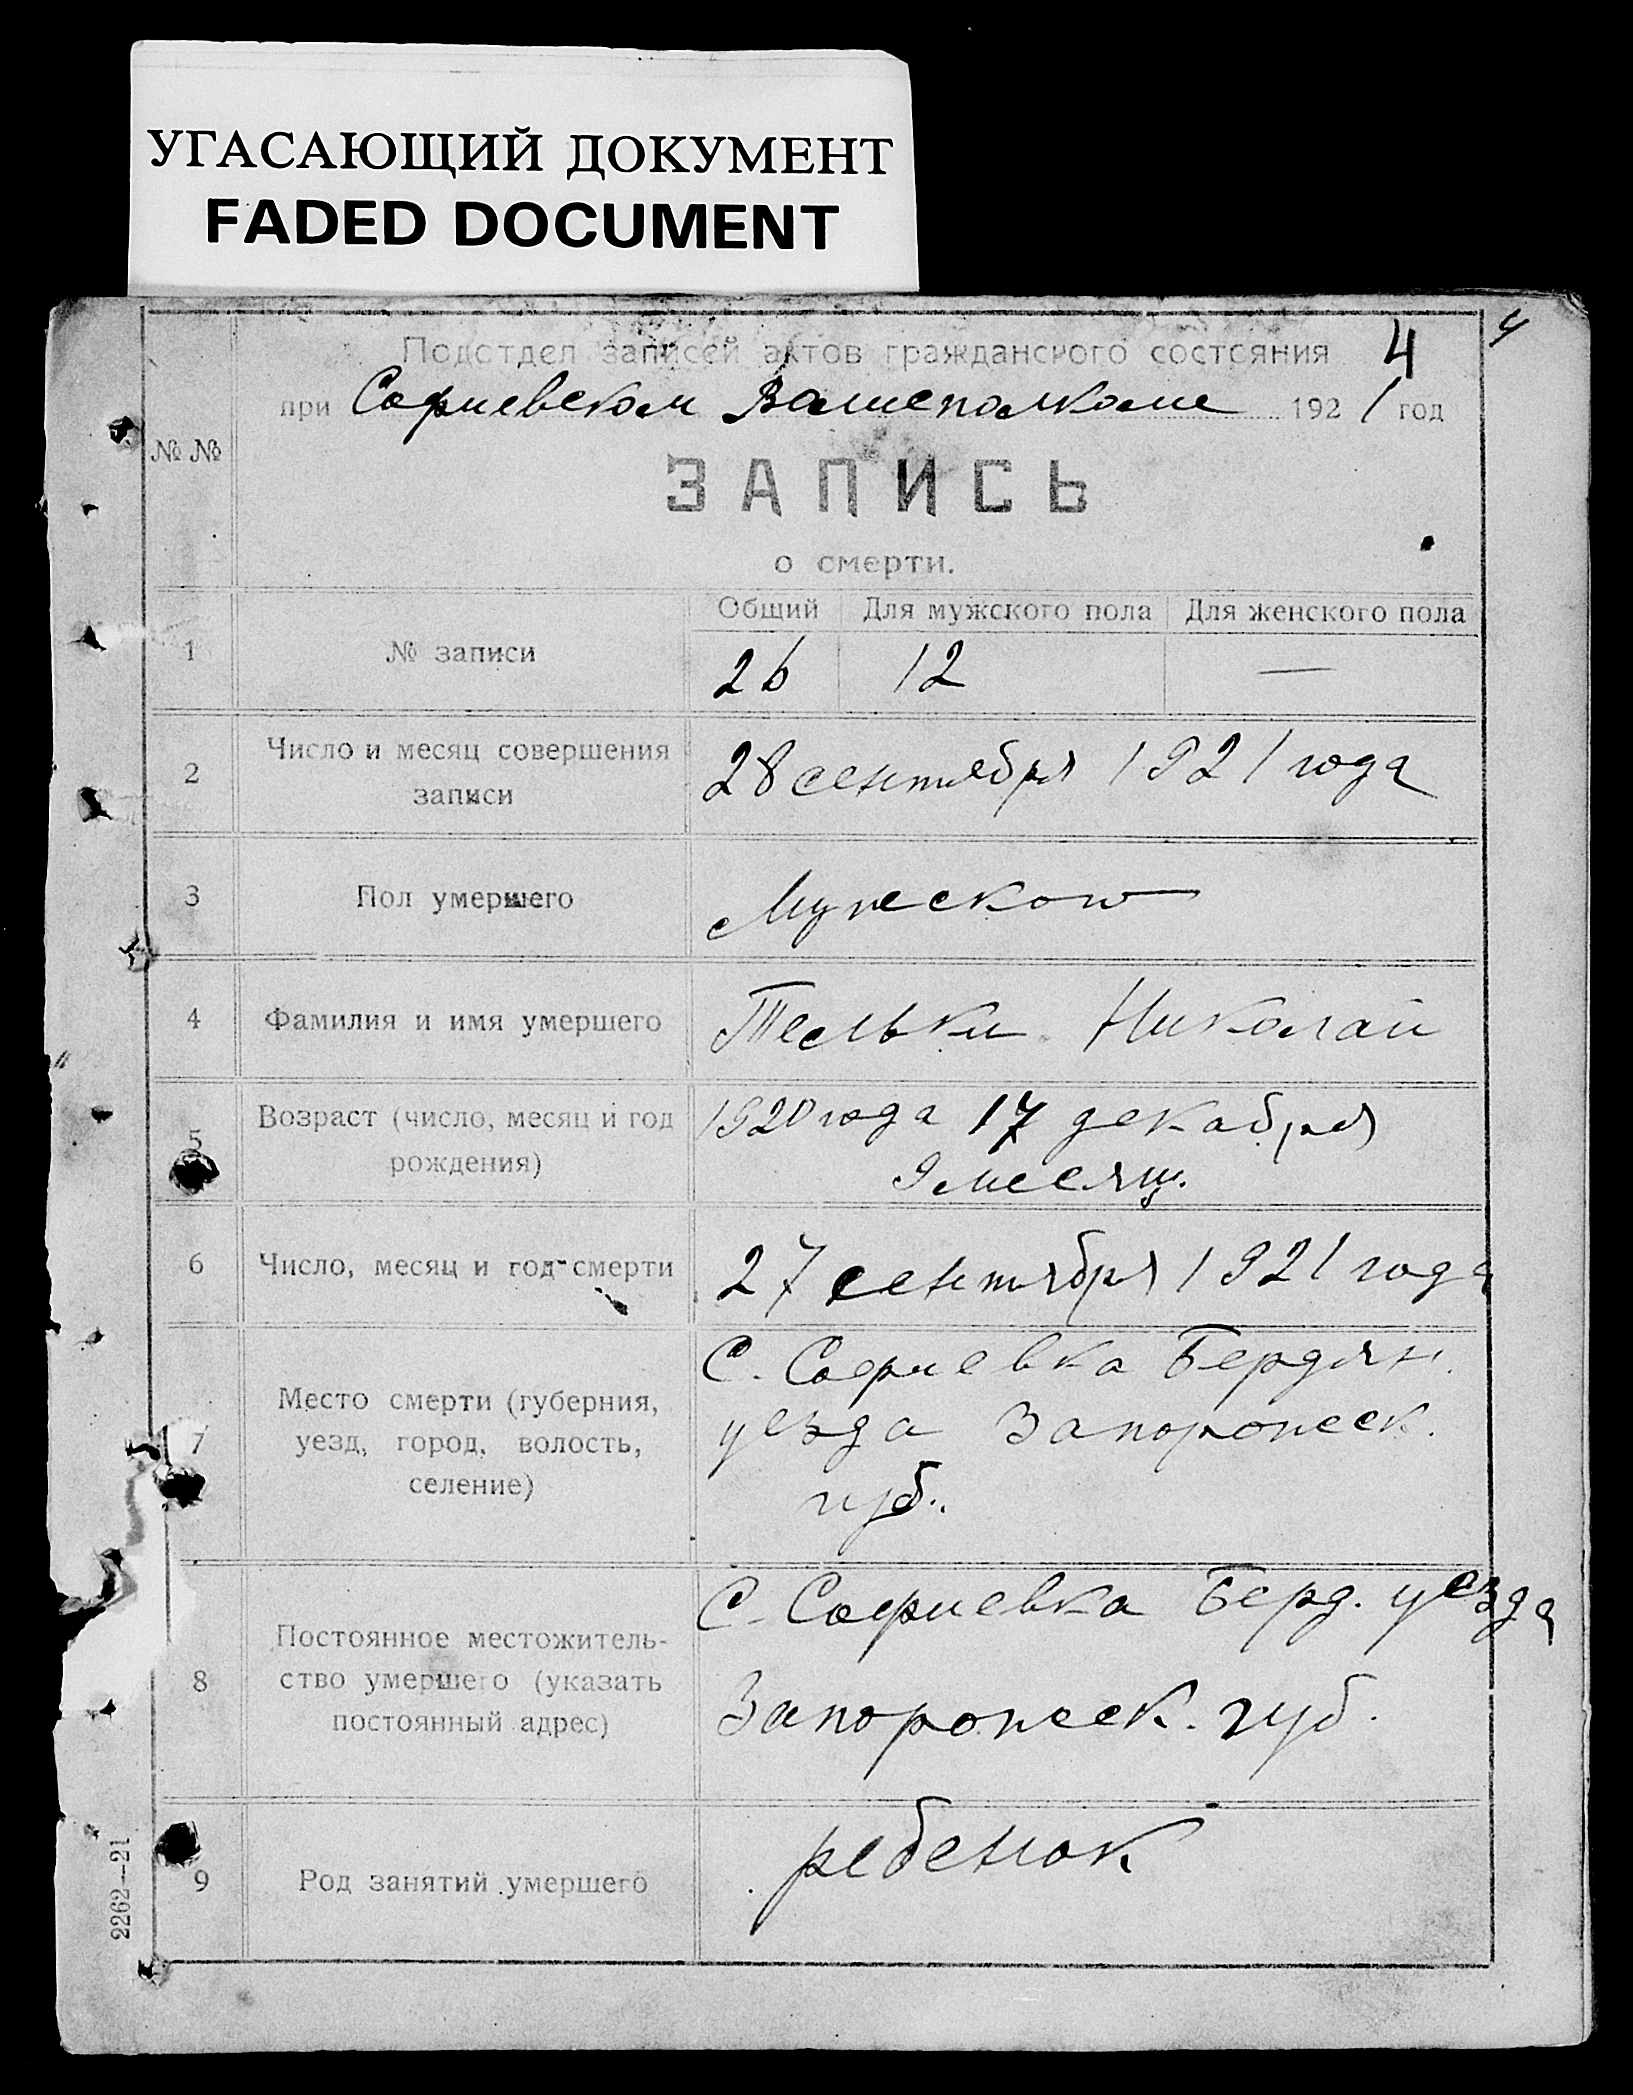 УГАСАЮЩИЙ ДОКУМЕНТ
FADED DOCUMENT
4
Подотдел записей актов гражданского состояния 4
при Софиевском Волисполкоме 1921 год
№ №
ЗАПИСЬ
о смерти.
Общий Для мужского пола Для женского пола
1 № записи 26 12 —
2 Число и месяц совершения
записи
28 сентября 1921 года
3 Пол умершего Мужской
4 Фамилия и имя умершего Николай
5 Возраст (число, месяц и год
рождения)
1920 года 17 декабря
9 месяц.
6 Число, месяц и год смерти 27 сентября 1921 года
7 Место смерти (губерния,
уезд, город, волость,
селение)
С. Софиевка Бердян.
уезда Запорожск.
губ.
8 Постоянное местожитель-
ство умершего (указать
постоянный адрес)
С. Софиевка Берд. уезда
Запорожск. губ.
9 Род занятий умершего ребенок
2262—21